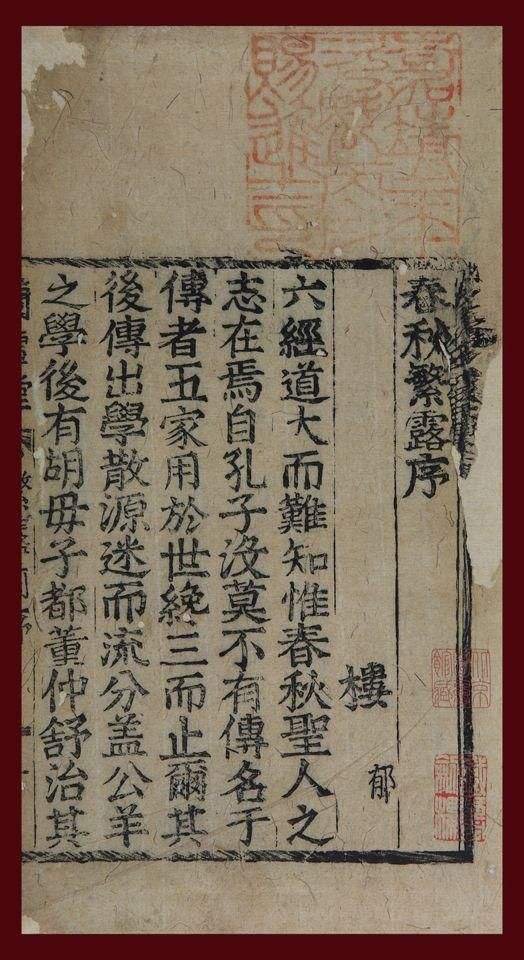 春秋繁露序
樓 郁
六經道大而難知惟春秋聖人之
志在焉自孔子沒莫不有傳名于
傳者五家用於世三而止爾其
後傳出學散源迷而流分盖公羊
之學後有胡毋子都董仲舒治其